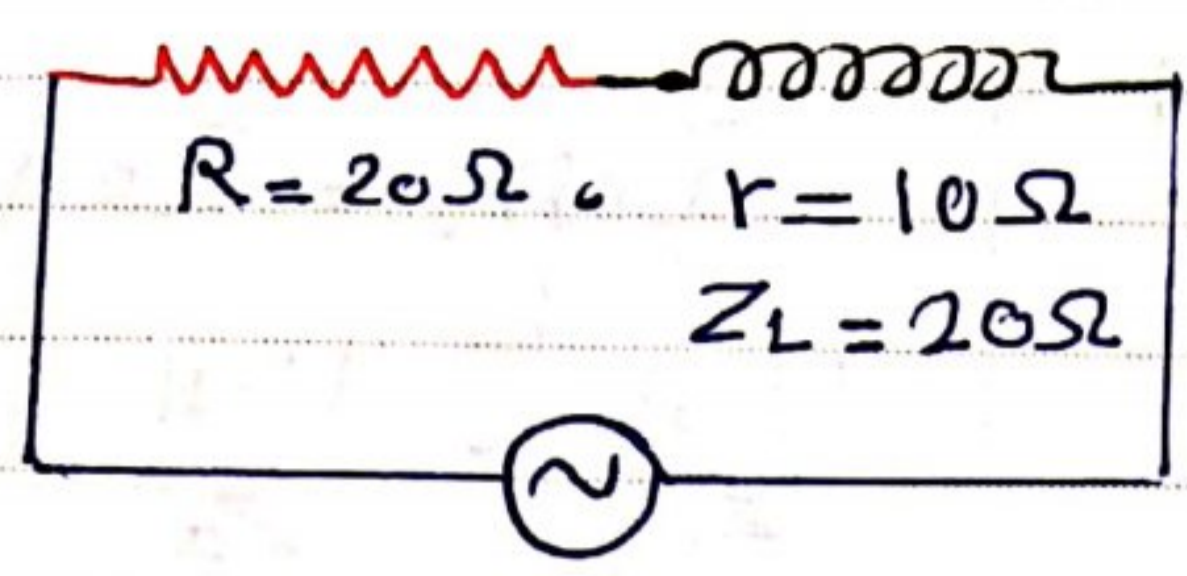 R = 20 Ω , r = 10 Ω
Z_L = 20 Ω